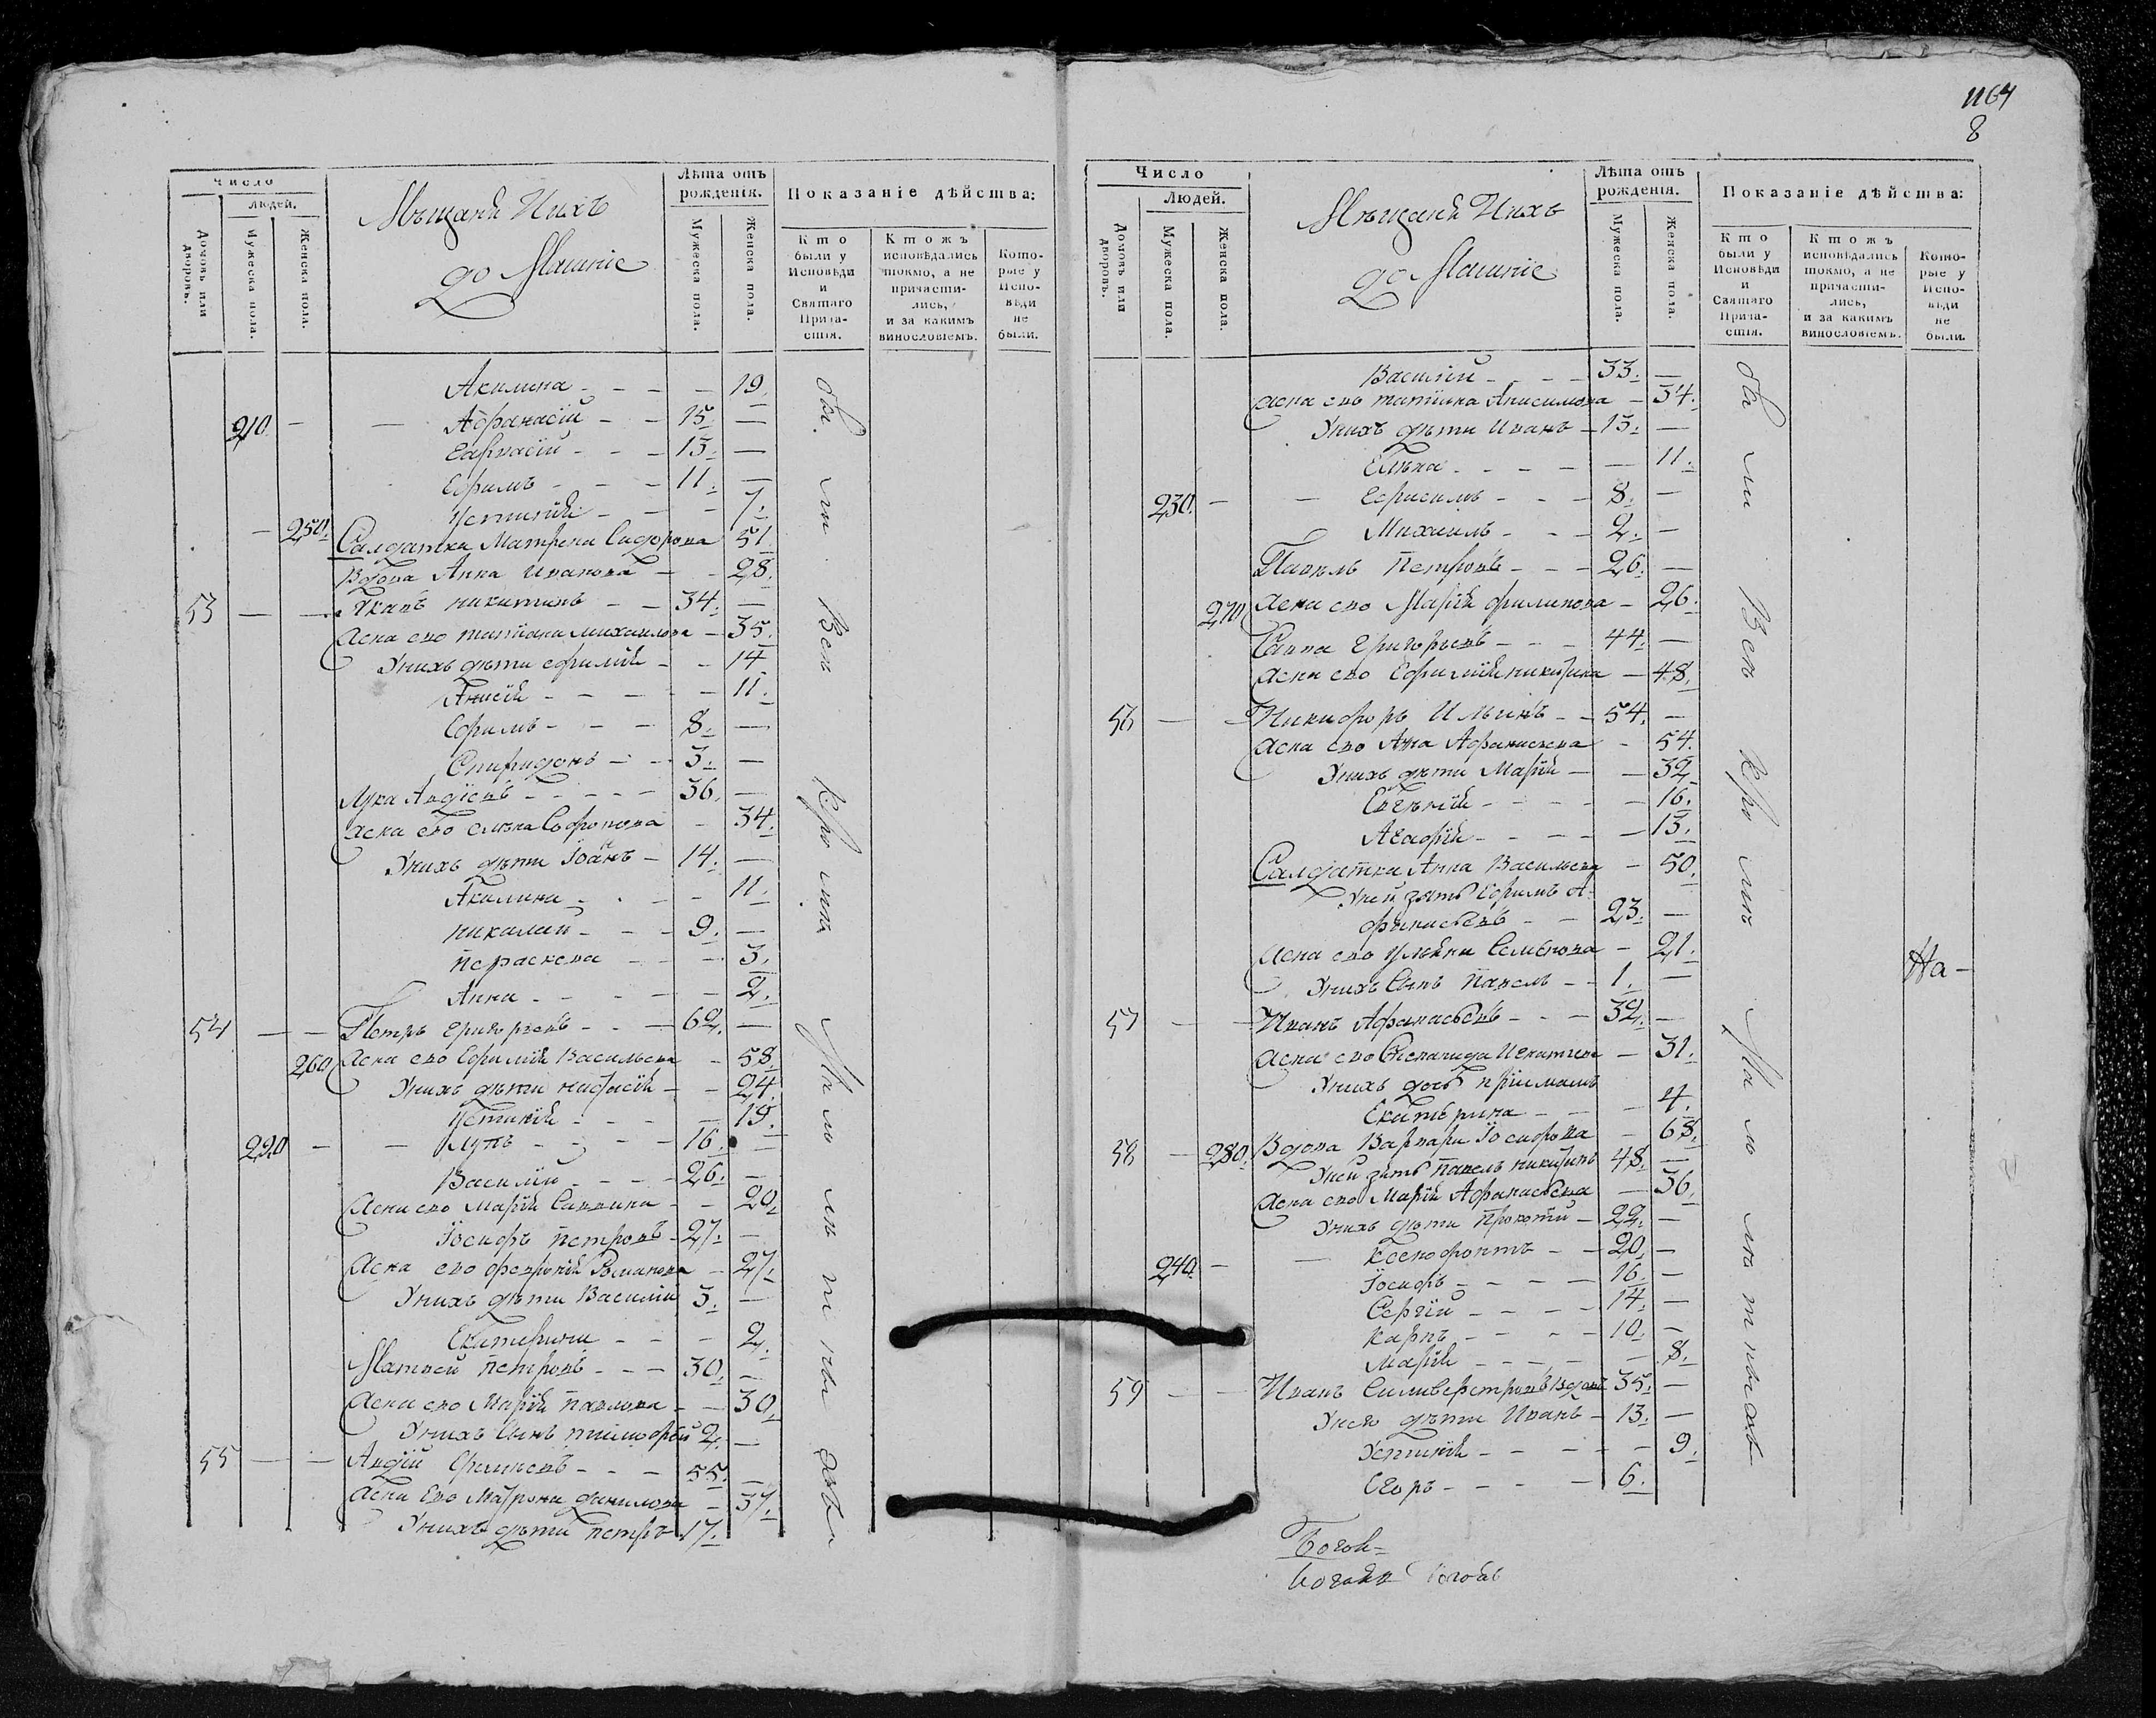 Число
людей.
Домовъ или дворовъ.
Мужеска пола.
Женска пола.
Мѣщаня Ихъ
до Машніе
Лѣта отъ
рожденія.
Мужеска пола.
Женска пола.
Показаніе дѣйства:
Кто
были у
Исповѣди
и
Святаго
Прича-
стія.
Ктожъ
исповѣдались
токмо, а не
причасти-
лись,
и за какимъ
винословіемъ.
Кото-
рые у
Испо-
вѣди
не
были.
Акилина - - - - 19.
210 - - Афанасій - - 15. -
Евфнасій - - - 13. -
Ефимъ - - - 11. -
Устинія - - - 7.
- 250. Салдатка Матрена Сидорова 51.
Вдова Анна Иванова - - 28.
53 - - Иванъ никитинъ - - 34. -
Жена его татіана михаилова - 35.
Унихъ дѣти ефимія - - 14
Анисія - - - - - 11.
Ефимъ - - - 8. -
Спиридонъ - - 3. -
Лука Авдіевъ - - - - - 36. -
Жена его елѣна Софронова - 34.
Унихъ дѣти Іоанъ - 14. -
Акилина - - - - 11.
николай - - - 9. -
Параскева - - - 3.
Анна - - - - - 2.
54 - - Петръ григорьевъ - - - 62. -
260 Жена его Ефимія Васильева - 58
Унихъ дѣти настасія - - 24.
Устинія - - - - 19.
220 - - Лупъ - - - - 16. -
Василій - - - - 26. -
Жена его Марія Саввина - - 20
Іосифъ петровъ - 27. -
Жена его февронія Романова - 27.
Унихъ дѣти Василій 3. -
Екатерина - - - 2.
Матвей петровъ - - - 30. -
Жена его Марія павлова - - 30
Унихъ Сынъ тимофей 2. -
55 - - Авдій Филиповъ - - - 55. -
Жена Его Матрона данилова - 37.
Унихъ дѣти петръ 17.
бы ли Всѣ Кро мѣ Ма ло лѣ т ны хъ
1164
8
Число
Людей.
Домовъ или дворовъ.
Мужеска пола.
Женска пола.
Мѣщаня Ихъ
до Машніе
Лѣта отъ
рожденія.
Мужеска пола.
Женска пола.
Показаніе дѣйства:
Кто
были у
Исповѣди
и
Святаго
Прича-
стія.
Ктожъ
исповѣдались
токмо, а не
причасти-
лись,
и за какимъ
винословіемъ.
Кото-
рые у
Испо-
вѣди
не
были.
Василій - - - - 33. -
Жена евъ татіана Анисимова - 34.
Унихъ дѣти Иванъ - 13. -
Елѣна - - - - - 11.
230 - - Герасимъ - - - 8. -
Михаилъ - - - 2. -
Павелъ Петровъ - - - 26. -
270 Жена его Марія филипова - 26.
Савва Григорьевъ - - - 44. -
Жена его Ефимія никифова - 48.
56 - - Никифоръ Ильинъ - - 54. -
Жена его Анна Афанасьева - 54.
Унихъ дѣти Марія - - 32
Евгѣнія - - - - - 16.
Агафія - - - - - 13.
Салдатка Анна Васильева - 50.
Уней зять Ефимъ А-
фанасьевъ - - 23. -
Жена его Ульяна Семенова - 21.
Унихъ Сынъ павелъ - - 1. -
57 - - Иванъ Афанасьевъ - - - 32. -
Жена его Степанида Игнатиева - 31.
Унихъ дочь пріимышъ
Екатерина - - - 4.
58 - 280. Вдова Варвара Іосифова - 68.
Уней зять павелъ никифовъ 48. -
Жена его Марія Афанасьева - 36.
Унихъ дѣти прокопій - 22. -
240 - - Ксенофонтъ - - 20. -
Іосифъ - - - - 16. -
Сергій - - - - 14. -
Карпъ - - - - 10. -
Марія - - - - - 8.
59 - - Иванъ Силиверстровъ Вдовъ 35. -
Унего дѣти Иванъ - 13. -
Устинія - - - - - 9.
Егоръ - - - - 6.
бы ли Всѣ Кро мѣ Ма ло лѣ т ныхъ
На-